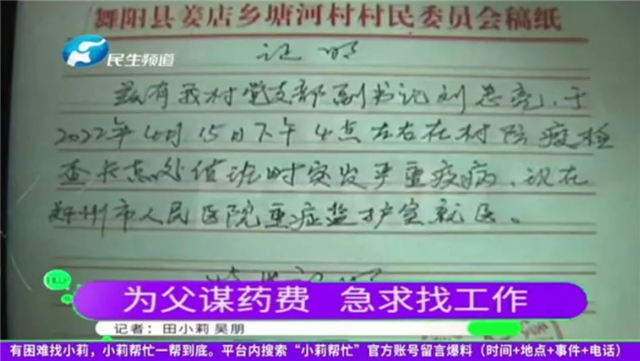 舞阳县姜店乡塘河村村民委员会稿纸
民生频道
证明
兹有我村党支部副书记刘总亮,于
2022年4月15日下午4点左右在村防疫检
查卡点处值班时突发严重疾病,现在
郑州市人民医院重症监护室就医。
特此证明
为父谋药费 急求找工作
记者:田小莉 吴朋
有困难找小莉,小莉帮忙一帮到底。平台内搜索“小莉帮忙”官方账号留言爆料(时间+地点+事件+电话)